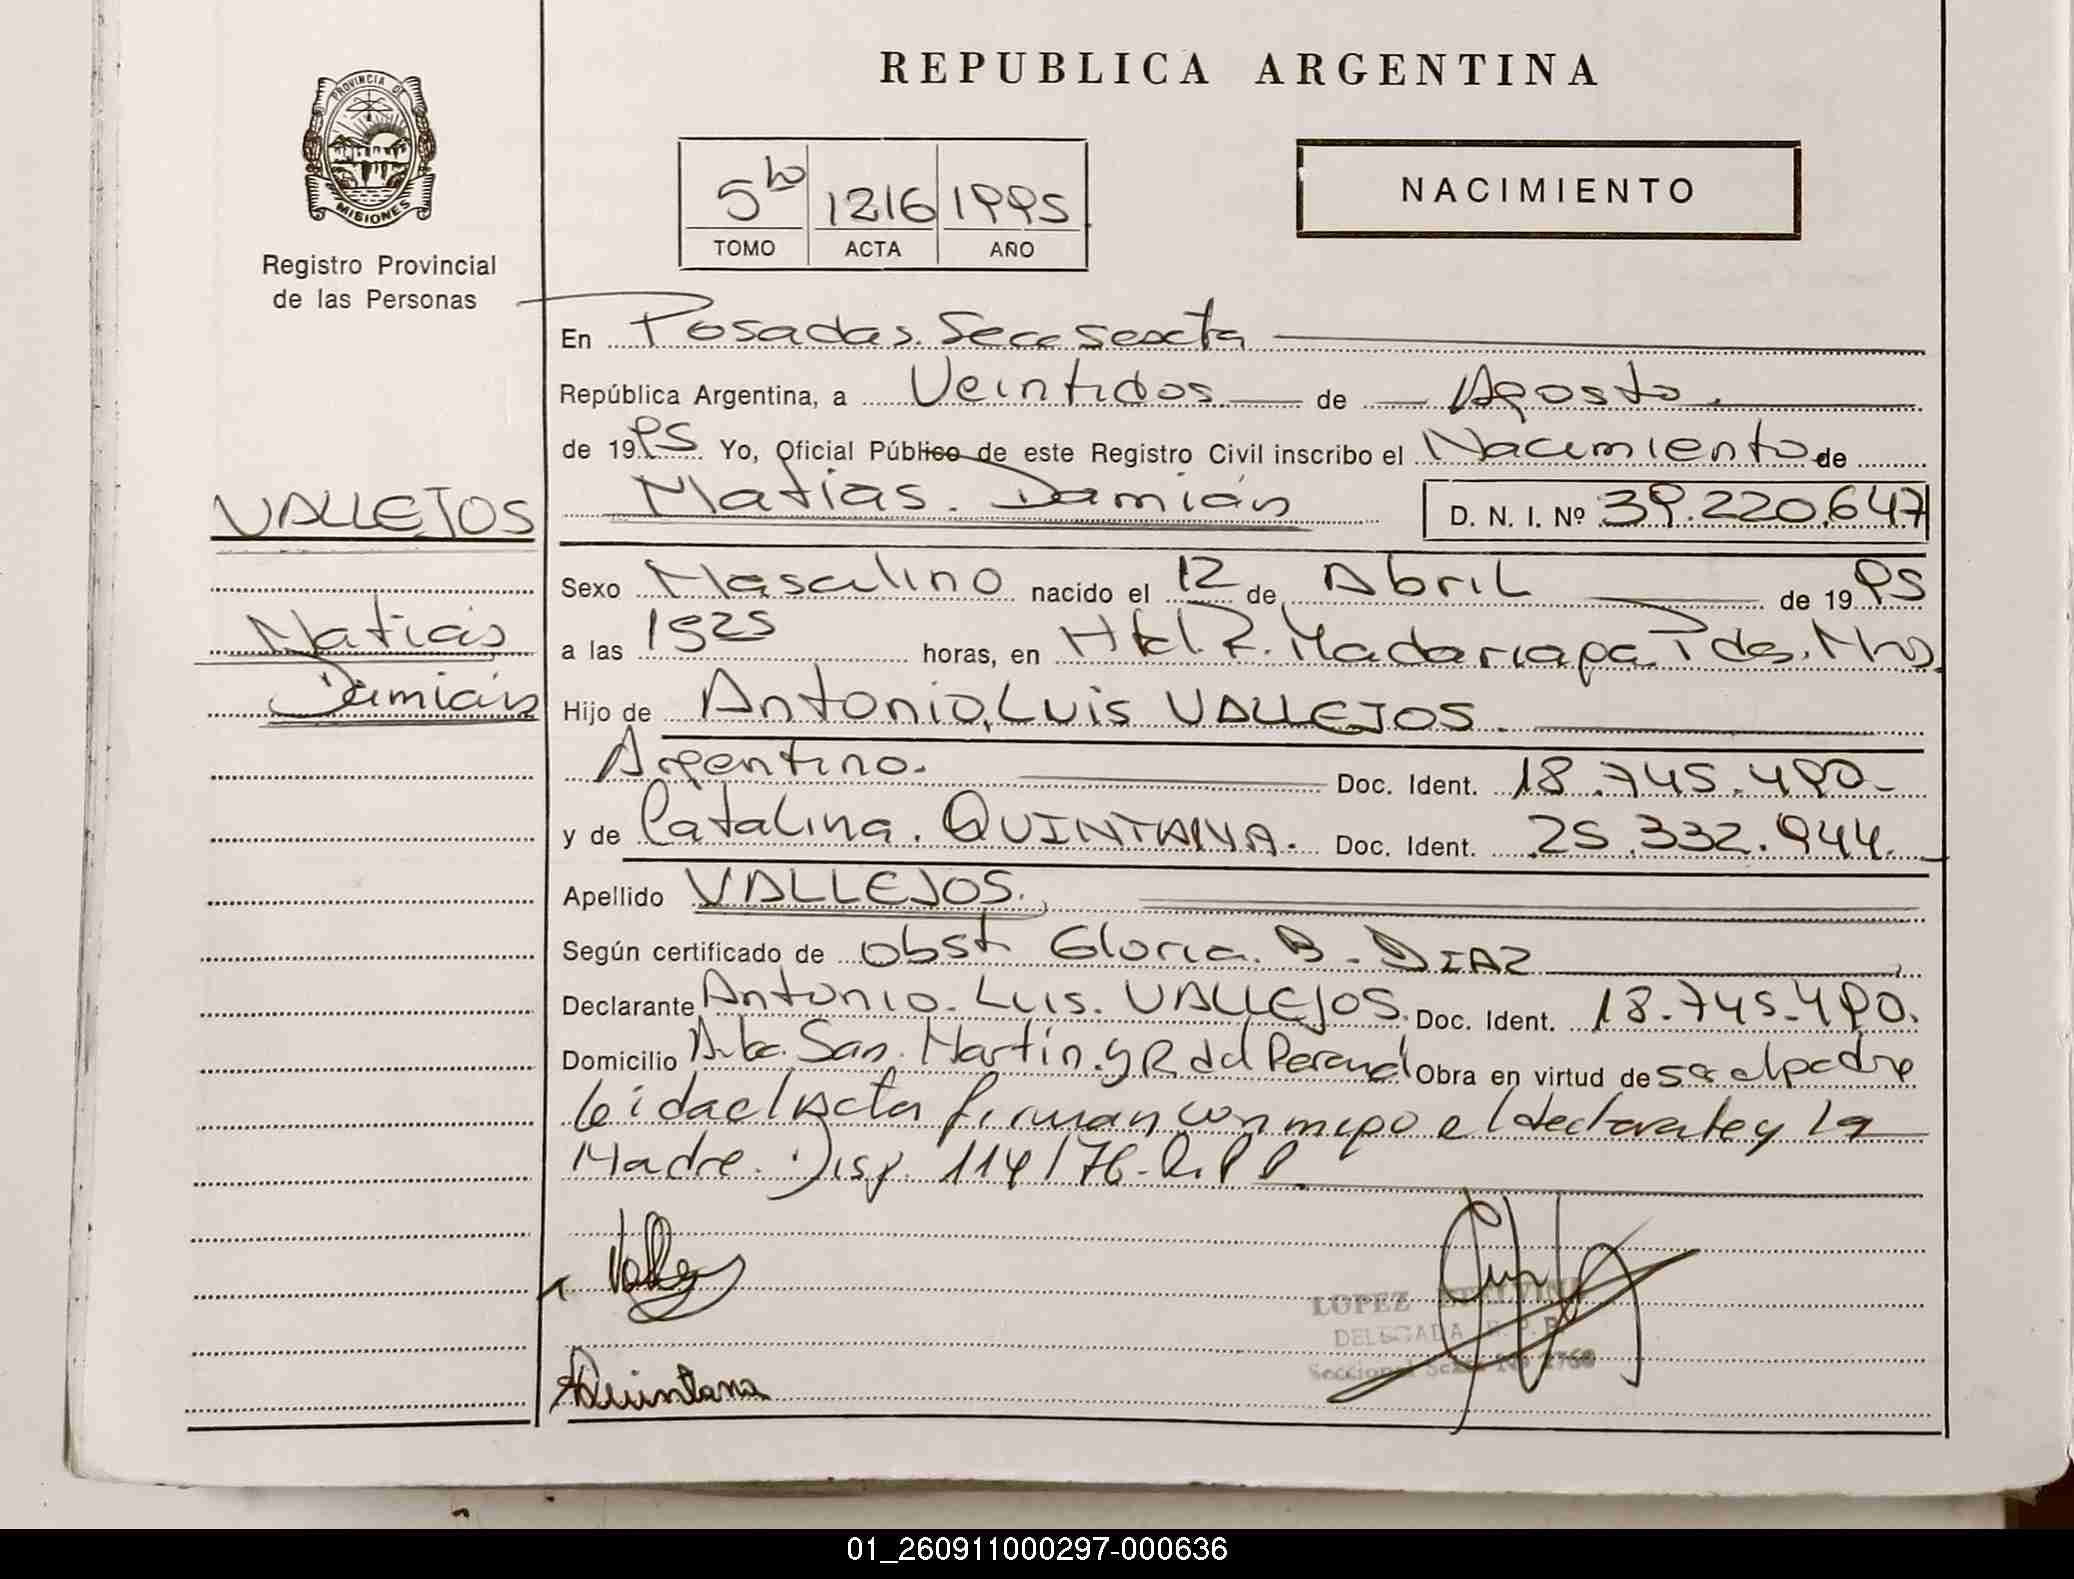 REPUBLICA ARGENTINA
PROVINCIA DE
MISIONES
Registro Provincial
de las Personas
5to 1216 1995
TOMO ACTA AÑO
NACIMIENTO
En Posadas. Secc Sexta
República Argentina, a Veintidos de Agosto.
de 1995 Yo, Oficial Público de este Registro Civil inscribo el Nacimiento de
Matias. Damián D. N. I. Nº 39.220.647
VALLEJOS
Matias
Damián
Sexo Masculino nacido el 12 de Abril de 1995
a las 1525 horas, en Htal. R. Madariaga. Pdas. Mns.
Hijo de Antonio, Luis VALLEJOS.
Argentino. Doc. Ident. 18.745.490.-
y de Catalina. QUINTANA. Doc. Ident. 25.332.944.
Apellido VALLEJOS.
Según certificado de Obst Gloria. B. DIAZ
Declarante Antonio. Luis. VALLEJOS. Doc. Ident. 18.745.490.
Domicilio San. Martín. y R del Obra en virtud de ser el padre
leida el Acta firman conmigo el declarante y la
Madre. Disp. 114/76-R.P.P.
Quintana
LOPEZ ETELVINA
DELEGADA R. P. P.
Seccional Sexta Nº 2768
01_260911000297-000636